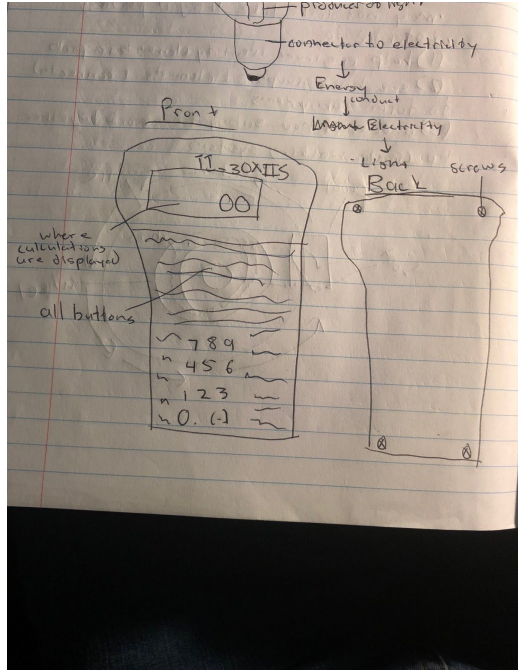 producer of light
connector to electricity
Energy
conduct
Electricity
Light
Front
Back
screws
TI-30XIIS
00
where
calculations
are displayed
all buttons
7 8 9
4 5 6
1 2 3
0. (-)